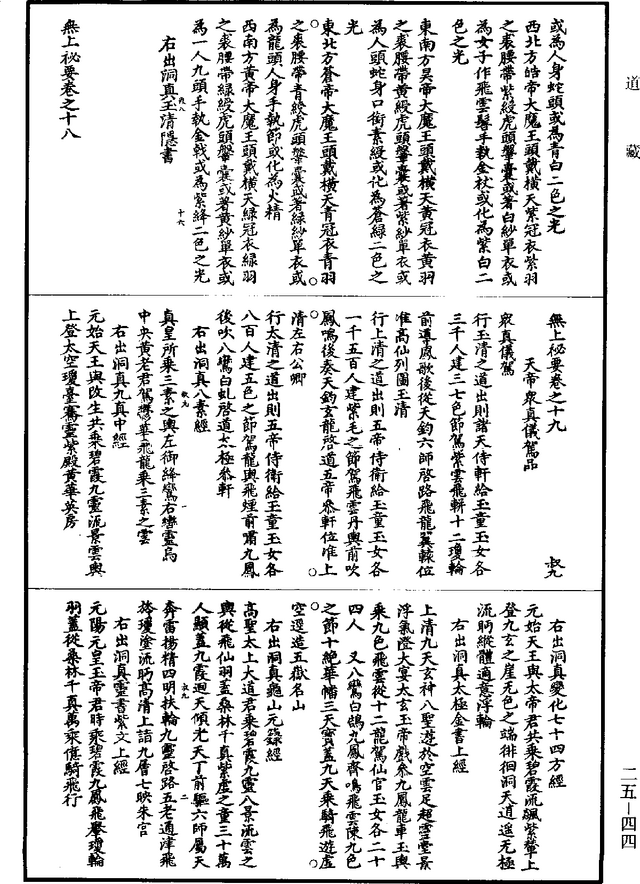 道藏
或為人身蛇頭或為青白二色之光
西北方皓帝大魔王頭戴橫天紫冠衣紫羽
之裘腰帶紫綬虎頭鞶囊或著白紗單衣或
為女子作飛雲髻手執金杖或化為紫白二
色之光
東南方昊帝大魔王頭戴橫天黃冠衣黃羽
之裘腰帶黃綬虎頭鞶囊或著紫紗單衣或
為人頭蛇身口銜素綬或化為蒼綠二色之
光
東北方蒼帝大魔王頭戴橫天青冠衣青羽
之裘腰帶青綬虎頭鞶囊或著綠紗單衣或
為龍頭人身手執節或化為火精
西南方黃帝大魔王頭戴橫天綠冠衣綠羽
之裘腰帶綠綬虎頭鞶囊或著黃紗單衣或
為一人九頭手執金戟或為紫絳二色之光
右出洞真玉清隱書
無上祕要卷之十八
無上祕要卷之十九 叔九
天帝眾真儀駕品
眾真儀駕
行玉清之道出則諸天侍軒給玉童玉女各
三千人建三七色節駕紫雲飛軿十二瓊輪
前導鳳歌後從天鈞六師啓路飛龍翼轅位
准高仙列圖玉清
行上清之道出則五帝侍衛給玉童玉女各
一千五百人建紫毛之節駕飛雲丹輿前吹
鳳鳴後奏天鈞玄龍啓道五帝參軒位准上
清左右公卿
行太清之道出則五帝侍衛給玉童玉女各
八百人建五色之節駕龍輿飛煙前嘯九鳳
後吹八鸞白虬啓道太極參軒
右出洞真八素經
真皇所乘三素之輿左御絳鸞右轡靈烏
中央黃老君駕華飛龍乘三素之雲
右出洞真九真中經
元始天王與改生共乘碧霞九靈流景雲輿
上登太空瓊臺騫靈紫殿黃華英房
右出洞真變化七十四方經
元始天王與太帝君共乘碧霞流飆紫輦上
登九玄之崖无色之端徘徊洞天逍遙无極
流眄縱體適意浮輪
右出洞真太極金書上經
上清九天玄神八聖遊於空雲足超雲景
浮氣澄大宴太玄玉帝戲參九鳳龍車玉輿
乘九色飛雲從十二龍駕仙官玉女各二十
四人 又八鸞白鵠九鳳齊鳴飛雲陳九色
之節十絕華幡三天寶蓋九天乘騎飛遊虛
空逕造五嶽名山
右出洞真龜山元籙經
高聖太上大道君乘碧霞九靈八景流雲之
輿從飛仙羽蓋桑林千真紫虛之童三十萬
人顯蓋九霞迴天傾光天丁前驅六師屬天
奔雷揚精四明扶輪九靈啓路五老通津飛
旍瓊塗流眄高清上詣九層七映朱宮
右出洞真靈書紫文上經
元陽元皇玉帝君時乘碧霞九鳳飛轝瓊輪
羽蓋從桑林千真萬乘億騎飛行
二五—四四